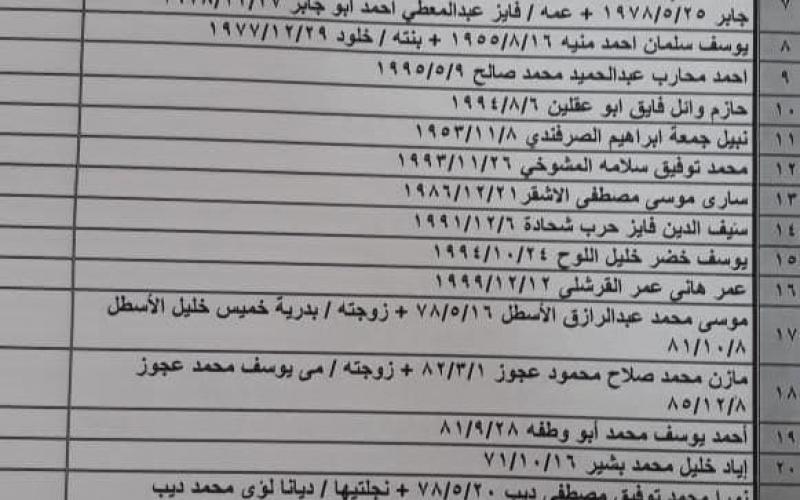 ٧ جابر ١٩٧٨/٥/٢٥ + عمه / فايز عبدالمعطي احمد ابو جابر
٨ يوسف سلمان احمد منيه ١٩٥٥/٨/١٦ + بنته / خلود ١٩٧٧/١٢/٢٩
٩ احمد محارب عبدالحميد محمد صالح ١٩٩٥/٥/٩
١٠ حازم وائل فايق ابو عقلين ١٩٩٤/٨/٦
١١ نبيل جمعة ابراهيم الصرفندي ١٩٥٣/١١/٨
١٢ محمد توفيق سلامه المشوخي ١٩٩٣/١١/٢٦
١٣ ساري موسى مصطفى الاشقر ١٩٨٦/١٢/٢١
١٤ سنيف الدين فايز حرب شحادة ١٩٩١/١٢/٦
١٥ يوسف خضر خليل اللوح ١٩٩٤/١٠/٢٤
١٦ عمر هاني عمر القرشلي ١٩٩٩/١٢/١٢
١٧ موسى محمد عبدالرازق الأسطل ٧٨/٥/١٦ + زوجته / بدرية خميس خليل الأسطل
٨١/١٠/٨
١٨ مازن محمد صلاح محمود عجوز ٨٢/٣/١ + زوجته / مي يوسف محمد عجوز
٨٥/١٢/٨
١٩ أحمد يوسف محمد أبو وطفه ٨١/٩/٢٨
٢٠ إياد خليل محمد بشير ٧١/١٠/١٦
محمد توفيق مصطفى ديب ٧٨/٥/٢٠ + نجلتيها / ديانا لؤي محمد ديب